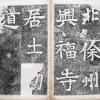 北徐州
興福寺
居士
道